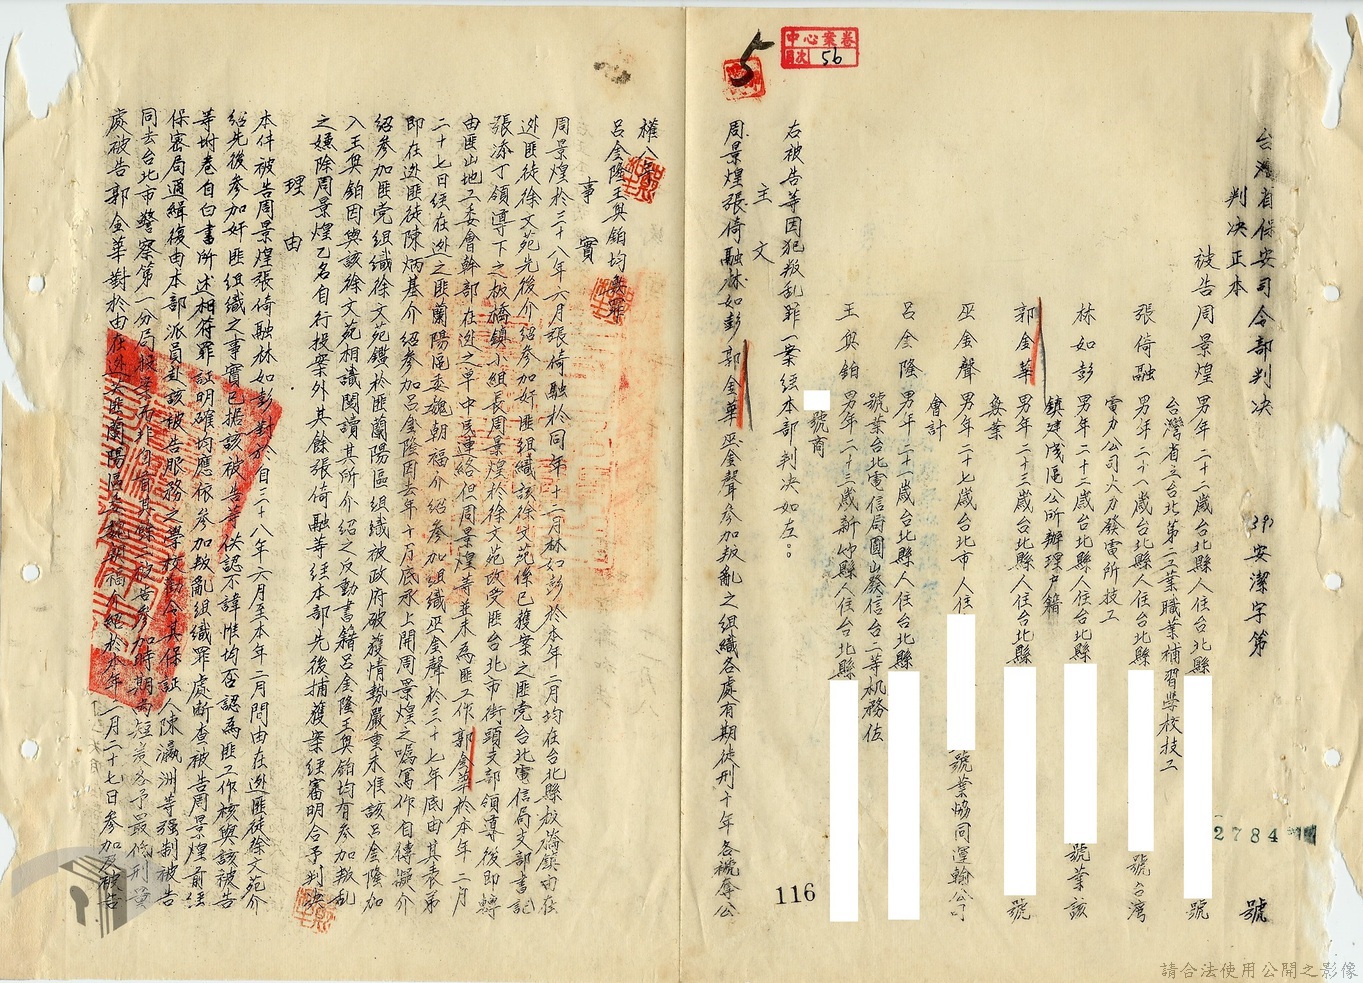 中心業卷
目次 56
5
台灣省保安司令部判決
39安潔字第2784號
判決正本
被告周景煌 男年二十二歲台北縣人住台北縣 號
台灣省立台北第二工業職業補習學校技工
張倚融 男年二十八歲台北縣人住台北縣 號台灣
電力公司火力發電所技工
林如彭 男年二十二歲台北縣人住台北縣 號業該
鎮建成區公所辦理戶籍
郭金華 男年二十三歲台北縣人住台北縣 號
無業
巫金聲 男年二十七歲台北市人住 號業協同運輸公司
會計
呂金隆 男年二十一歲台北縣人住台北縣
號業台北電信局圓山發信台二等机務佐
王與鉑 男年二十三歲新竹縣人住台北縣
號商
右被告等因犯叛乱罪一案經本部判决如左：
主文
周景煌張倚融林如彭郭金華巫金聲參加叛亂之組織各處有期徒刑十年各褫奪公
116
權八年
呂金隆王與鉑均無罪
事實
周景煌於三十八年六月張倚融於同年十二月林如彭於本年二月均在台北縣板橋鎮由在
逃匪徒徐文苑先後介紹參加奸匪組織該徐文苑係已獲案之匪党台北電信局支部書記
張添丁領導下之板橋鎮小組長周景煌於徐文苑改受匪台北市街頭支部領導後即轉
由匪山地工委會幹部在逃之單中民連絡但周景煌等並未為匪工作郭金華於本年一月
二十七日經在逃之匪蘭陽區委魏朝福介紹參加組織巫金聲於三十七年底由其表弟
即在逃匪徒陳炳基介紹參加呂金隆因去年十月底承上開周景煌之囑寫作自傳擬介
紹參加匪党組織徐文苑鑑於匪蘭陽區組織被政府破獲情勢嚴重未准該呂金隆加
入王與鉑因與該徐文苑相識閱讀其所介紹之反動書籍呂金隆王與鉑均有參加叛乱
之嫌除周景煌乙名自行投案外其餘張倚融等經本部先後捕獲案經審明合予判決
理由
本件被告周景煌張倚融林如彭對於自三十八年六月至本年二月間由在逃匪徒徐文苑介
紹先後參加奸匪組織之事實已據該被告等供認不諱惟均否認為匪工作核與該被告
等附卷自白書所述相符罪証明確均應依參加叛亂組織罪處斷查被告周景煌前經
保密局通緝復由本部派員赴該被告服務之學校勸令其保証人陳瀛洲等强制被告
同去台北市警察第一分局投案而非自首
處被告郭金華對於由在逃之匪蘭陽區委魏朝福介紹於本年一月二十七日參加
請合法使用公開之影像